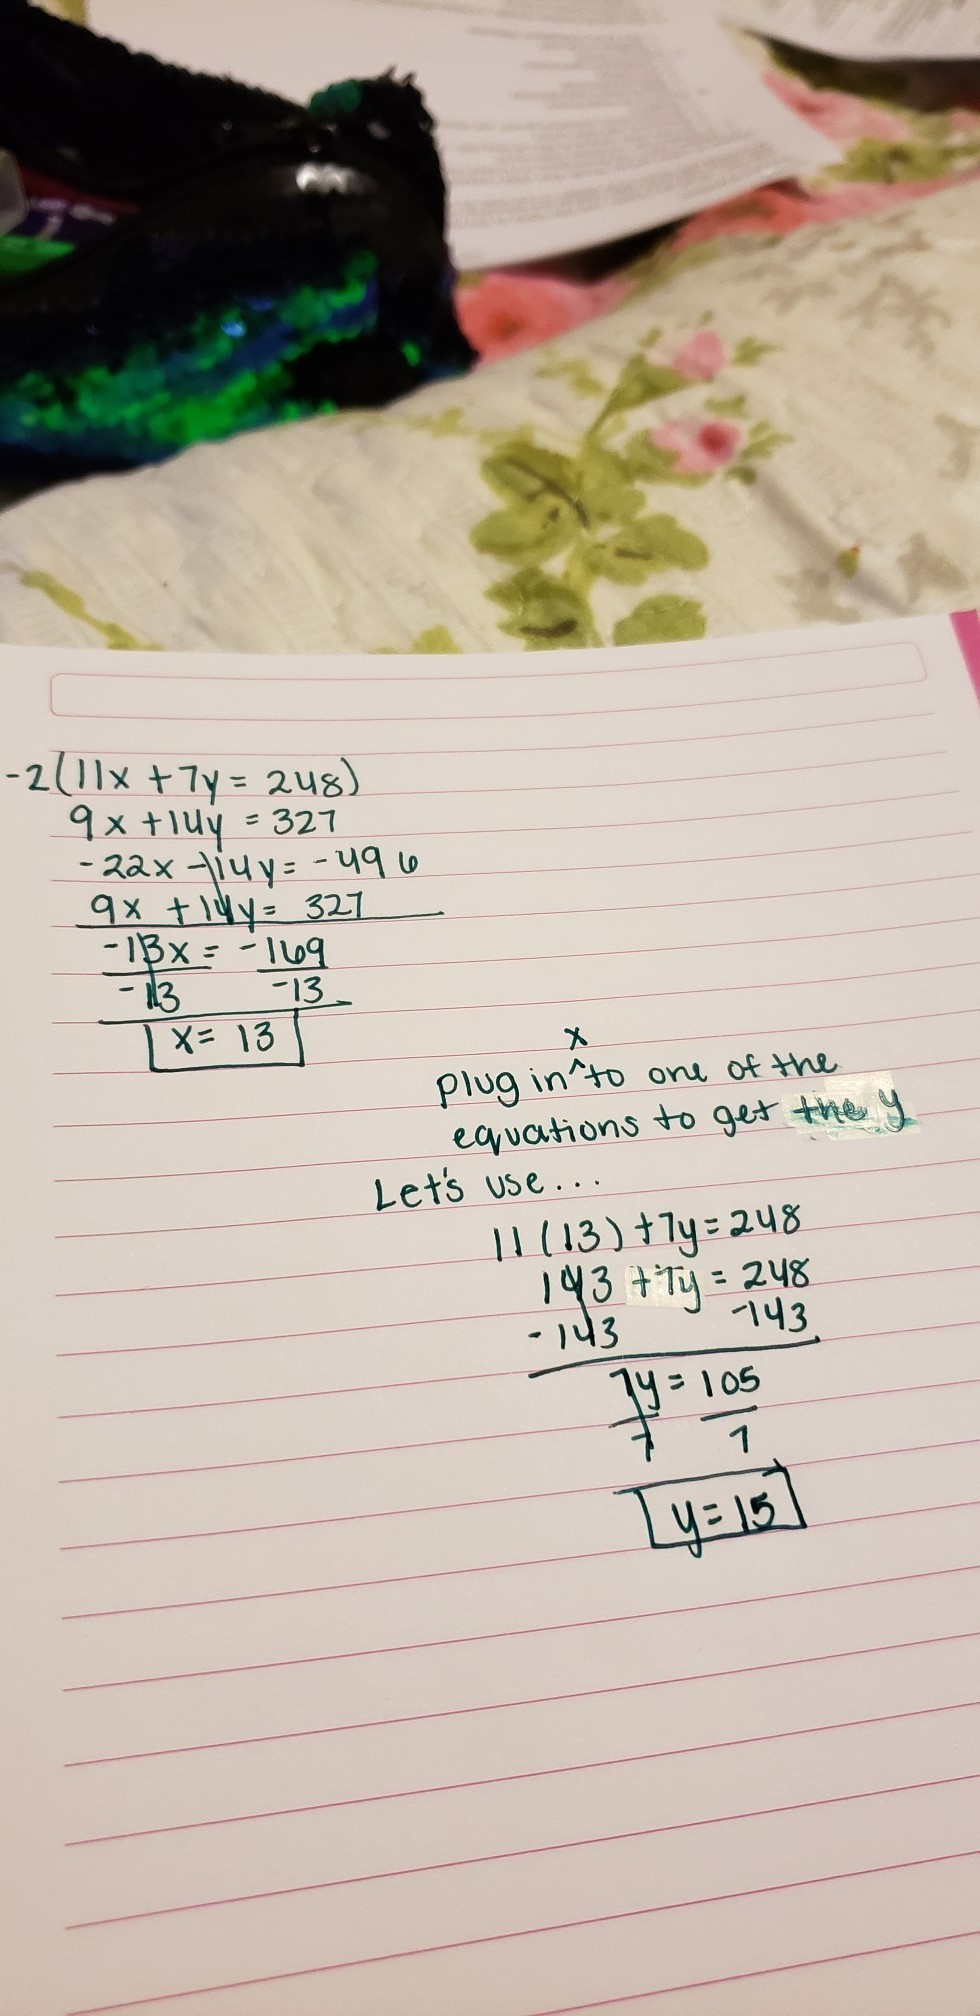 -2(11x + 7y = 248)
9x + 14y = 327
-22x - 14y = -496
9x + 14y = 327
-13x = -169
-13 -13
x = 13
x
plug in ^ to one of the
equations to get the y
Let's use...
11(13) + 7y = 248
143 + 7y = 248
-143 -143
7y = 105
7 7
y = 15